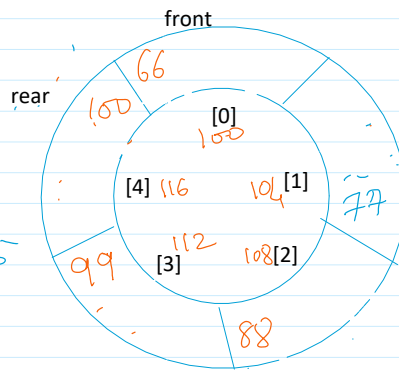 front
66
rear
100
[0]
100
[4] 116
104 [1]
77
112
108 [2]
[3]
99
88